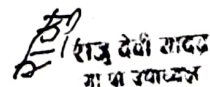 राजु देवी यादव
गा पा उपाध्यक्ष